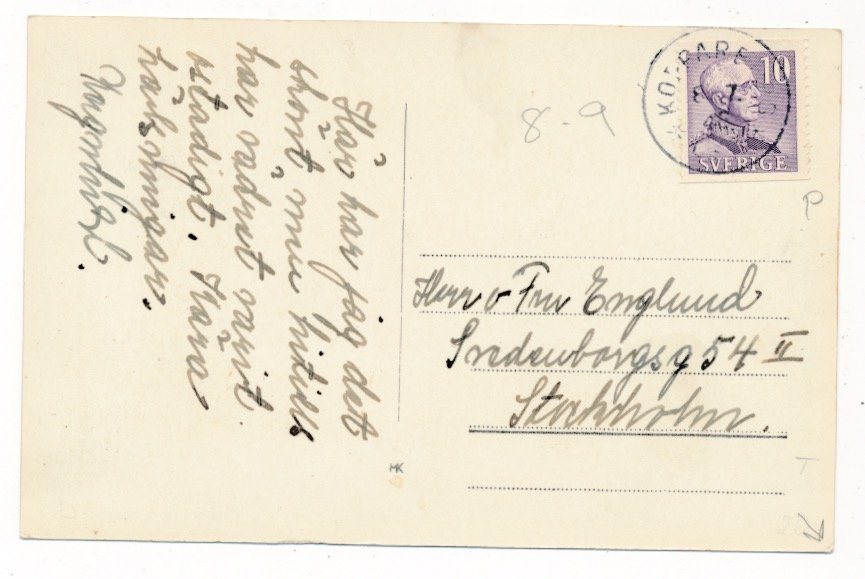 Här har jag det
skönt men hitills
har vädret varit
ostadigt. Kära
hälsningar.
Ingrid
8-9
KOPPARE
10
SVERIGE
Herr o Fru Englund
Swedenborgsg 54 II
Stockholm.
MK